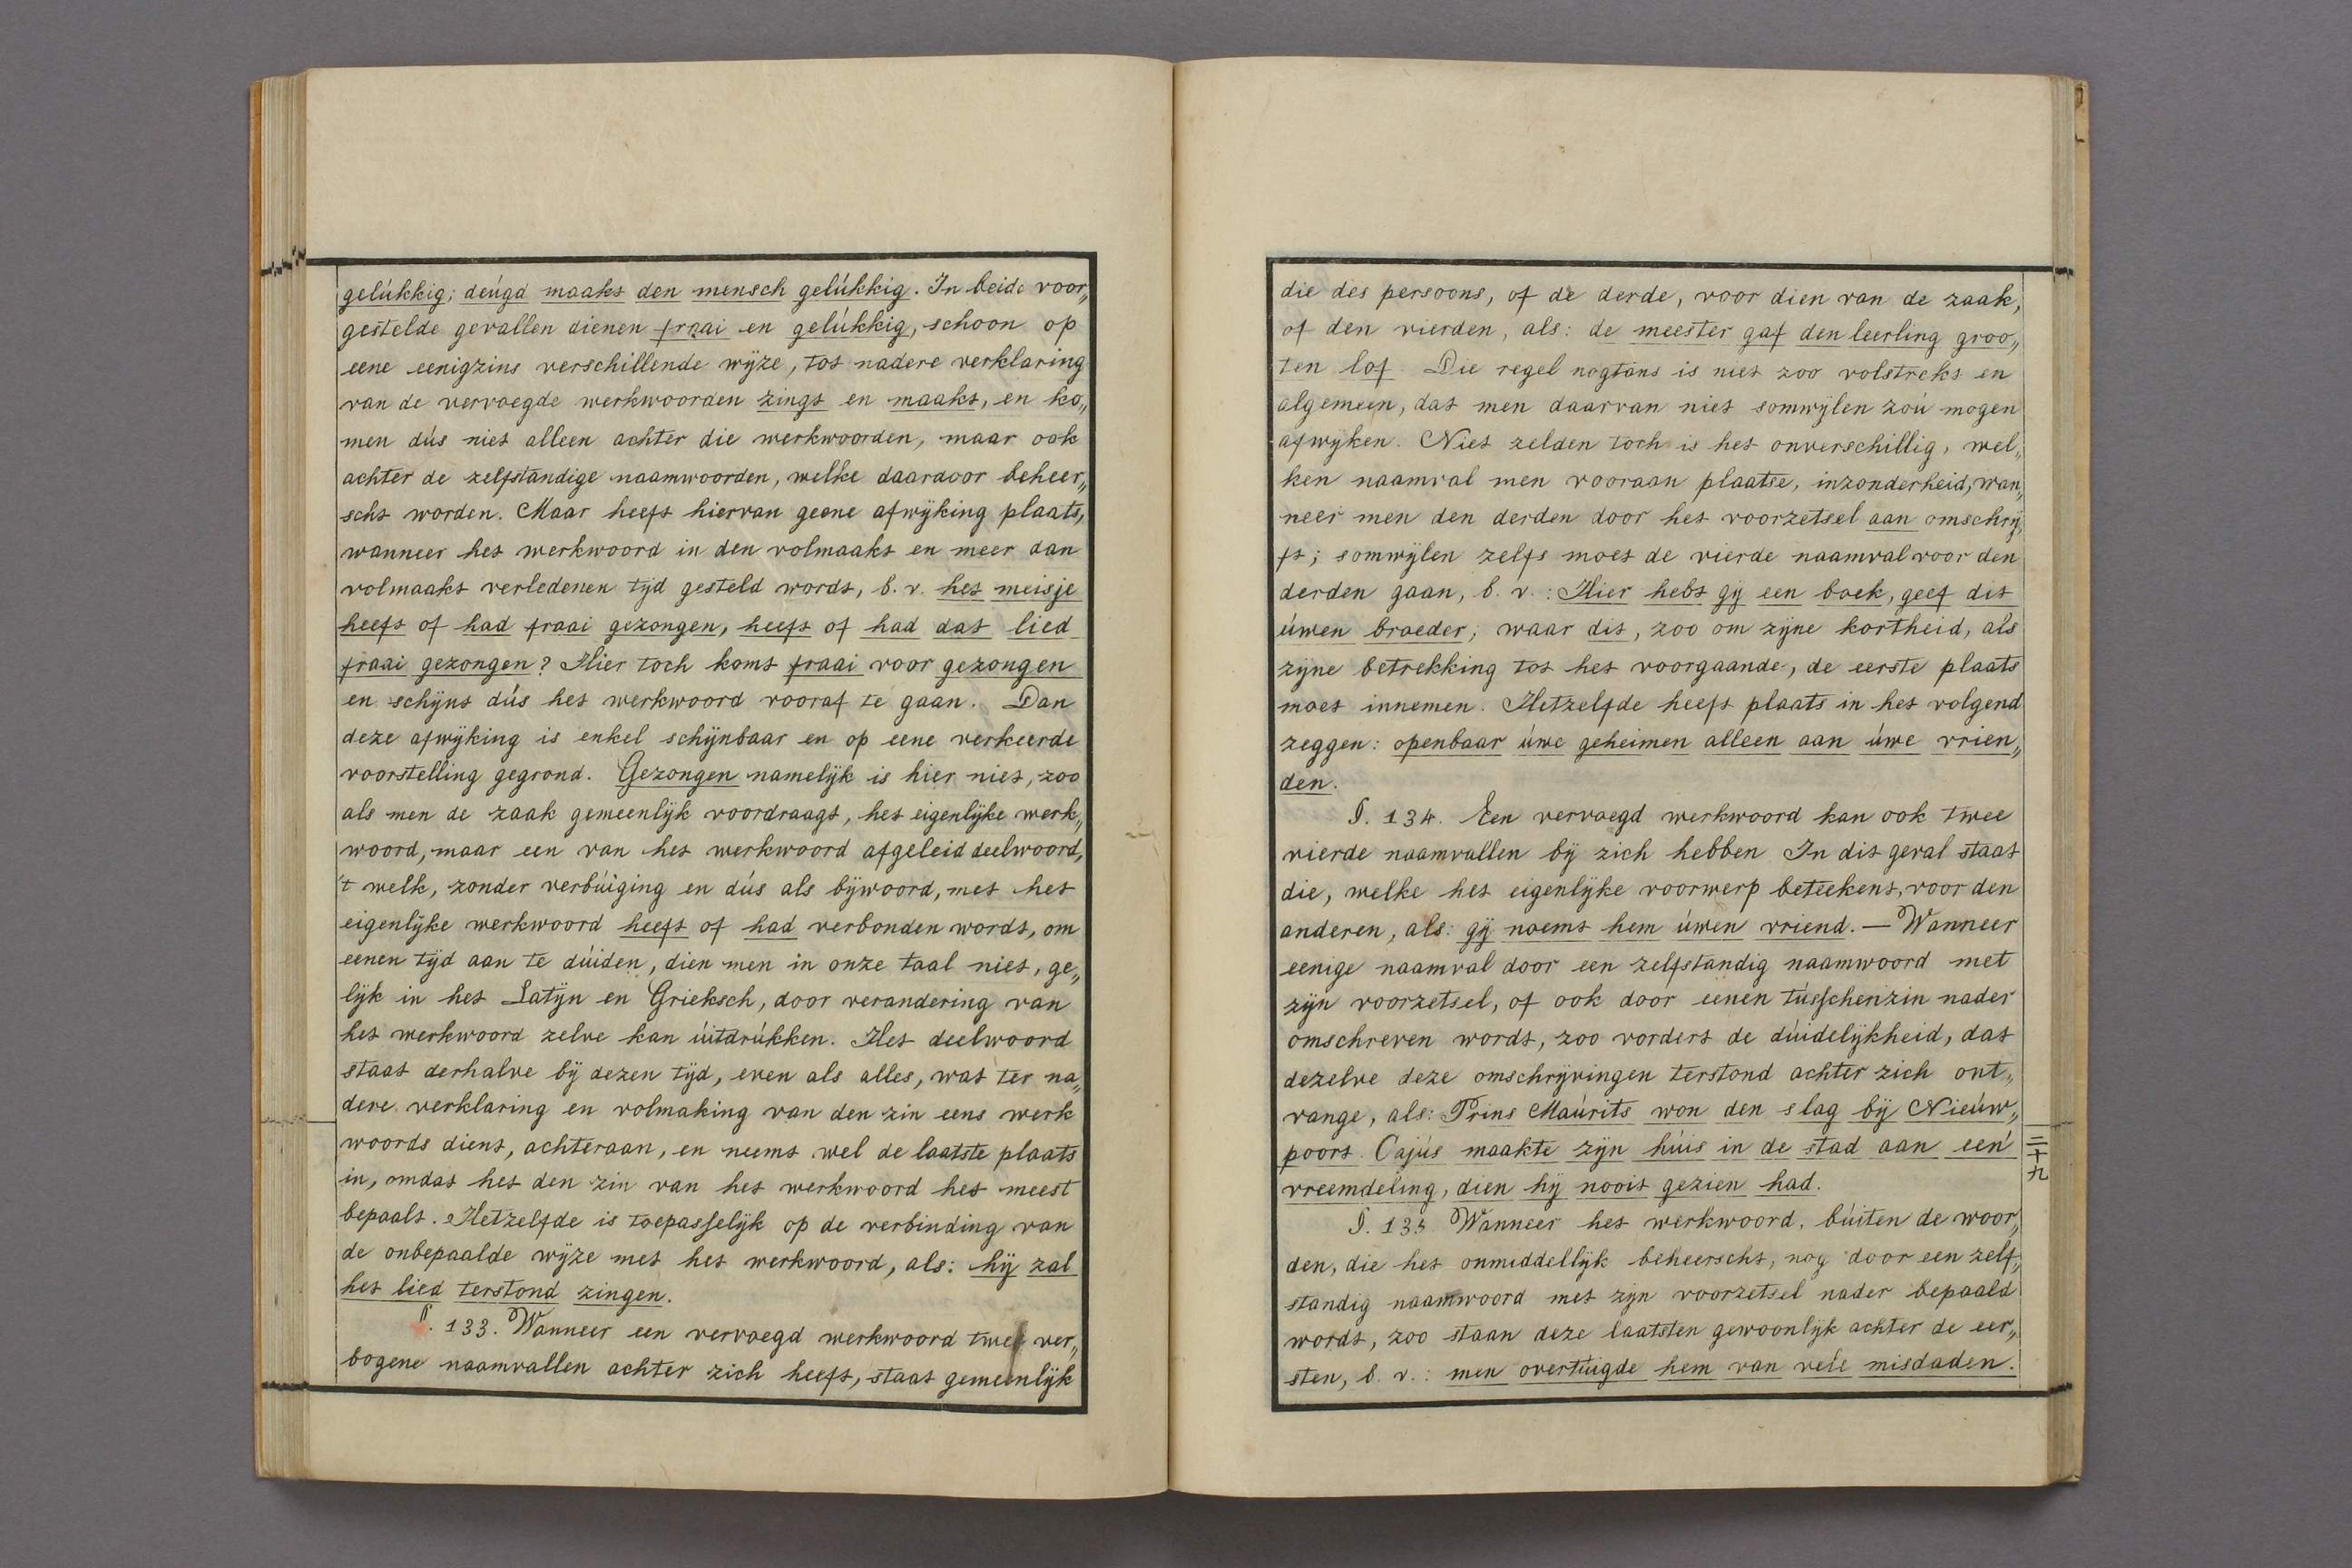 gelúkkig; deúgd maakt den mensch gelúkkig. In beide voor„
gestelde gevallen dienen fraai en gelúkkig, schoon op
eene eenigzins verschillende wijze, tot nadere verklaring
van de vervoegde werkwoorden zingt en maakt, en ko„
men dús niet alleen achter die werkwoorden, maar ook
achter de zelfstandige naamwoorden, welke daardoor beheer„
scht worden. Maar heeft hiervan geene afwijking plaats,
wanneer het werkwoord in den volmaakt en meer dan
volmaakt verledenen tijd gesteld wordt, b. v. het meisje
heeft of had fraai gezongen, heeft of had dat lied
fraai gezongen? Hier toch komt fraai voor gezongen
en schijnt dús het werkwoord vooraf te gaan. Dan
deze afwijking is enkel schijnbaar en op eene verkeerde
voorstelling gegrond. Gezongen namelijk is hier niet, zoo
als men de zaak gemeenlijk voordraagt, het eigenlijke werk„
woord, maar een van het werkwoord afgeleid deelwoord,
't welk, zonder verbúiging en dús als bijwoord, met het
eigenlijke werkwoord heeft of had verbonden wordt, om
eenen tijd aan te dúiden, dien men in onze taal niet, ge„
lijk in het Latijn en Grieksch, door verandering van
het werkwoord zelve kan úitdrúkken. Het deelwoord
staat derhalve bij dezen tijd, even als alles, wat ter na„
dere verklaring en volmaking van den zin eens werk
woords dient, achteraan, en neemt wel de laatste plaats
in, omdat het den zin van het werkwoord het meest
bepaalt. Hetzelfde is toepasselijk op de verbinding van
de onbepaalde wijze met het werkwoord, als: hij zal
het lied terstond zingen.
§. 133. Wanneer een vervoegd werkwoord twee ver„
bogene naamvallen achter zich heeft, staat gemeenlijk
die des persoons, of de derde, voor dien van de zaak,
of den vierden, als: de meester gaf den leerling groo„
ten lof. Die regel nogtans is niet zoo volstrekt en
algemeen, dat men daarvan niet somwijlen zoú mogen
afwijken. Niet zelden toch is het onverschillig, wel„
ken naamval men vooraan plaatse, inzonderheid, wan„
neer men den derden door het voorzetsel aan omschrij„
ft; somwijlen zelfs moet de vierde naamval voor den
derden gaan, b. v.: Hier hebt gij een boek, geef dit
úwen broeder; waar dit, zoo om zijne kortheid, als
zijne betrekking tot het voorgaande, de eerste plaats
moet innemen. Hetzelfde heeft plaats in het volgend
zeggen: openbaar úwe geheimen alleen aan úwe vrien„
den.
§. 134. Een vervoegd werkwoord kan ook twee
vierde naamvallen bij zich hebben In dit geval staat
die, welke het eigenlijke voorwerp beteekent, voor den
anderen, als: gij noemt hem úwen vriend. — Wanneer
eenige naamval door een zelfstandig naamwoord met
zijn voorzetsel, of ook door eenen tússchenzin nader
omschreven wordt, zoo vordert de dúidelijkheid, dat
dezelve deze omschrijvingen terstond achter zich ont„
vange, als: Prins Maúrits won den slag bij Nieúw„
poort. Cajús maakte zijn húis in de stad aan een
vreemdeling, dien hij nooit gezien had.
§. 135 Wanneer het werkwoord, búiten de woor„
den, die het onmiddellijk beheerscht, nog door een zelf„
standig naamwoord met zijn voorzetsel nader bepaald
wordt, zoo staan deze laatsten gewoonlijk achter de eer„
sten, b. v.: men overtúigde hem van vele misdaden.
二十九